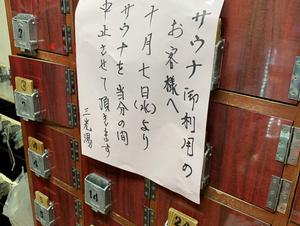 サウナ御利用の
お客様へ
十月七日(水)より
サウナを当分の間
中止させて頂きます
三光湯
2
3
4
14